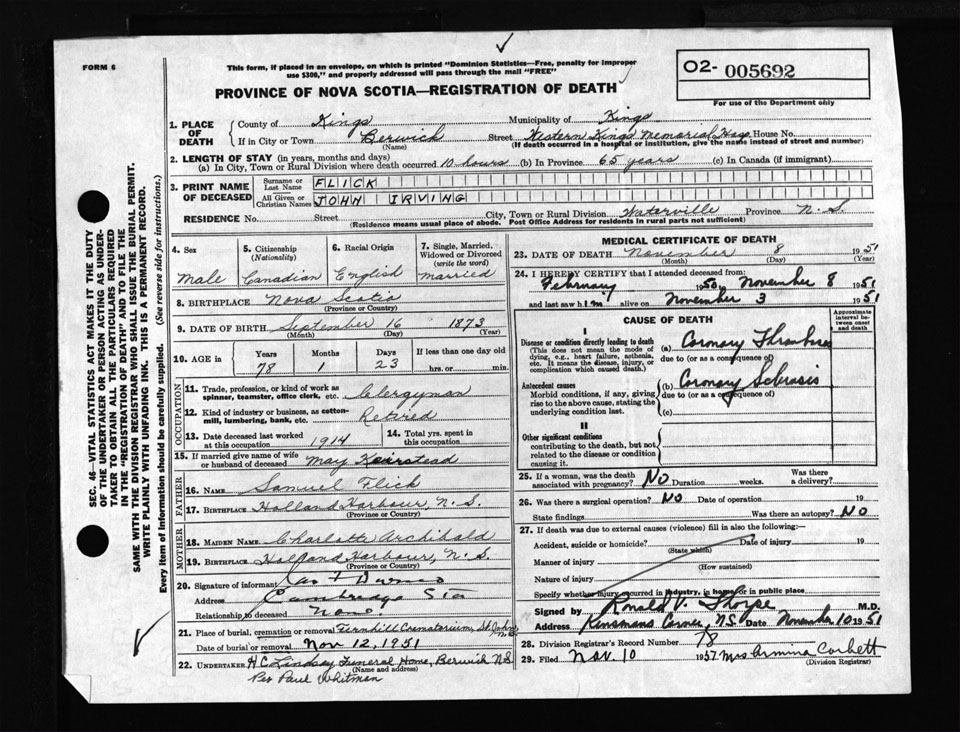 FORM 6
This form, if placed in an envelope, on which is printed "Dominion Statistics—Free, penalty for improper
use $300," and properly addressed will pass through the mail "FREE"
PROVINCE OF NOVA SCOTIA—REGISTRATION OF DEATH
O2- 005692
For use of the Department only
1. PLACE OF DEATH
County of Kings Municipality of Kings
If in City or Town Berwick Street Western Kings Memorial Hosp House No.
(Name) (If death occurred in a hospital or institution, give the name instead of street and number)
2. LENGTH OF STAY (in years, months and days)
(a) In City, Town or Rural Division where death occurred 10 hours (b) In Province 65 years (c) In Canada (if immigrant)
3. PRINT NAME OF DECEASED
Surname or Last Name FLICK
All Given or Christian Names JOHN IRVING
RESIDENCE No. Street City, Town or Rural Division Waterville Province N.S.
(Residence means usual place of abode. Post Office Address for residents in rural parts not sufficient)
4. Sex Male
5. Citizenship (Nationality) Canadian
6. Racial Origin English
7. Single, Married, Widowed or Divorced (write the word) Married
8. BIRTHPLACE Nova Scotia
(Province or Country)
9. DATE OF BIRTH September 16 1873
(Month) (Day) (Year)
10. AGE in Years 78 Months 1 Days 23 If less than one day old hrs. or min.
OCCUPATION
11. Trade, profession, or kind of work as spinner, teamster, office clerk, etc. Clergyman
12. Kind of industry or business, as cotton-mill, lumbering, bank, etc. Retired
13. Date deceased last worked at this occupation 1914
14. Total yrs. spent in this occupation
15. If married give name of wife or husband of deceased May Keirstead
FATHER
16. NAME Samuel Flick
17. BIRTHPLACE Holland Harbour, N.S.
(Province or Country)
MOTHER
18. MAIDEN NAME Charlotte Archibald
19. BIRTHPLACE Holland Harbour, N.S.
(Province or Country)
20. Signature of informant
Address Cambridge Sta
Relationship to deceased None
21. Place of burial, cremation or removal Fernhill Crematorium, St. John, N.B.
Date of burial or removal Nov 12, 1951
22. UNDERTAKER H C Lindsay Funeral Home, Berwick N.S.
(Name and address)
Per Paul Whitman
MEDICAL CERTIFICATE OF DEATH
23. DATE OF DEATH November 8 1951
(Month) (Day) (Year)
24. I HEREBY CERTIFY that I attended deceased from:
February 1950 to November 8 1951
and last saw him alive on November 3 1951
CAUSE OF DEATH
Approximate interval between onset and death
I
Disease or condition directly leading to death
(This does not mean the mode of dying, e.g., heart failure, asthenia, etc. It means the disease, injury, or complication which caused death.)
(a) Coronary Thrombosis
due to (or as a consequence of)
Antecedent causes
Morbid conditions, if any, giving rise to the above cause, stating the underlying condition last.
(b) Coronary Sclerosis
due to (or as a consequence of)
(c)
II
Other significant conditions contributing to the death, but not related to the disease or condition causing it.
25. If a woman, was the death associated with pregnancy? NO Duration weeks. Was there a delivery?
26. Was there a surgical operation? NO Date of operation 19
State findings Was there an autopsy? NO
27. If death was due to external causes (violence) fill in also the following:—
Accident, suicide or homicide? Date of injury 19
(State which)
Manner of injury
(How sustained)
Nature of injury
Specify whether injury occurred in industry, in home or in public place
Signed by Ronald V. Thorpe M.D.
Address Kinsmans Corner, N.S. Date November 10 1951
28. Division Registrar's Record Number 78
29. Filed Nov. 10 1951 Mrs Armina Corbett
(Division Registrar)
SEC. 46—VITAL STATISTICS ACT MAKES IT THE DUTY
OF THE UNDERTAKER OR PERSON ACTING AS UNDERTAKER TO OBTAIN ALL THE PARTICULARS REQUIRED
IN THE "REGISTRATION OF DEATH" AND TO FILE THE
SAME WITH THE DIVISION REGISTRAR WHO SHALL ISSUE THE BURIAL PERMIT.
WRITE PLAINLY WITH UNFADING INK. THIS IS A PERMANENT RECORD.
Every item of information should be carefully supplied. (See reverse side for instructions.)